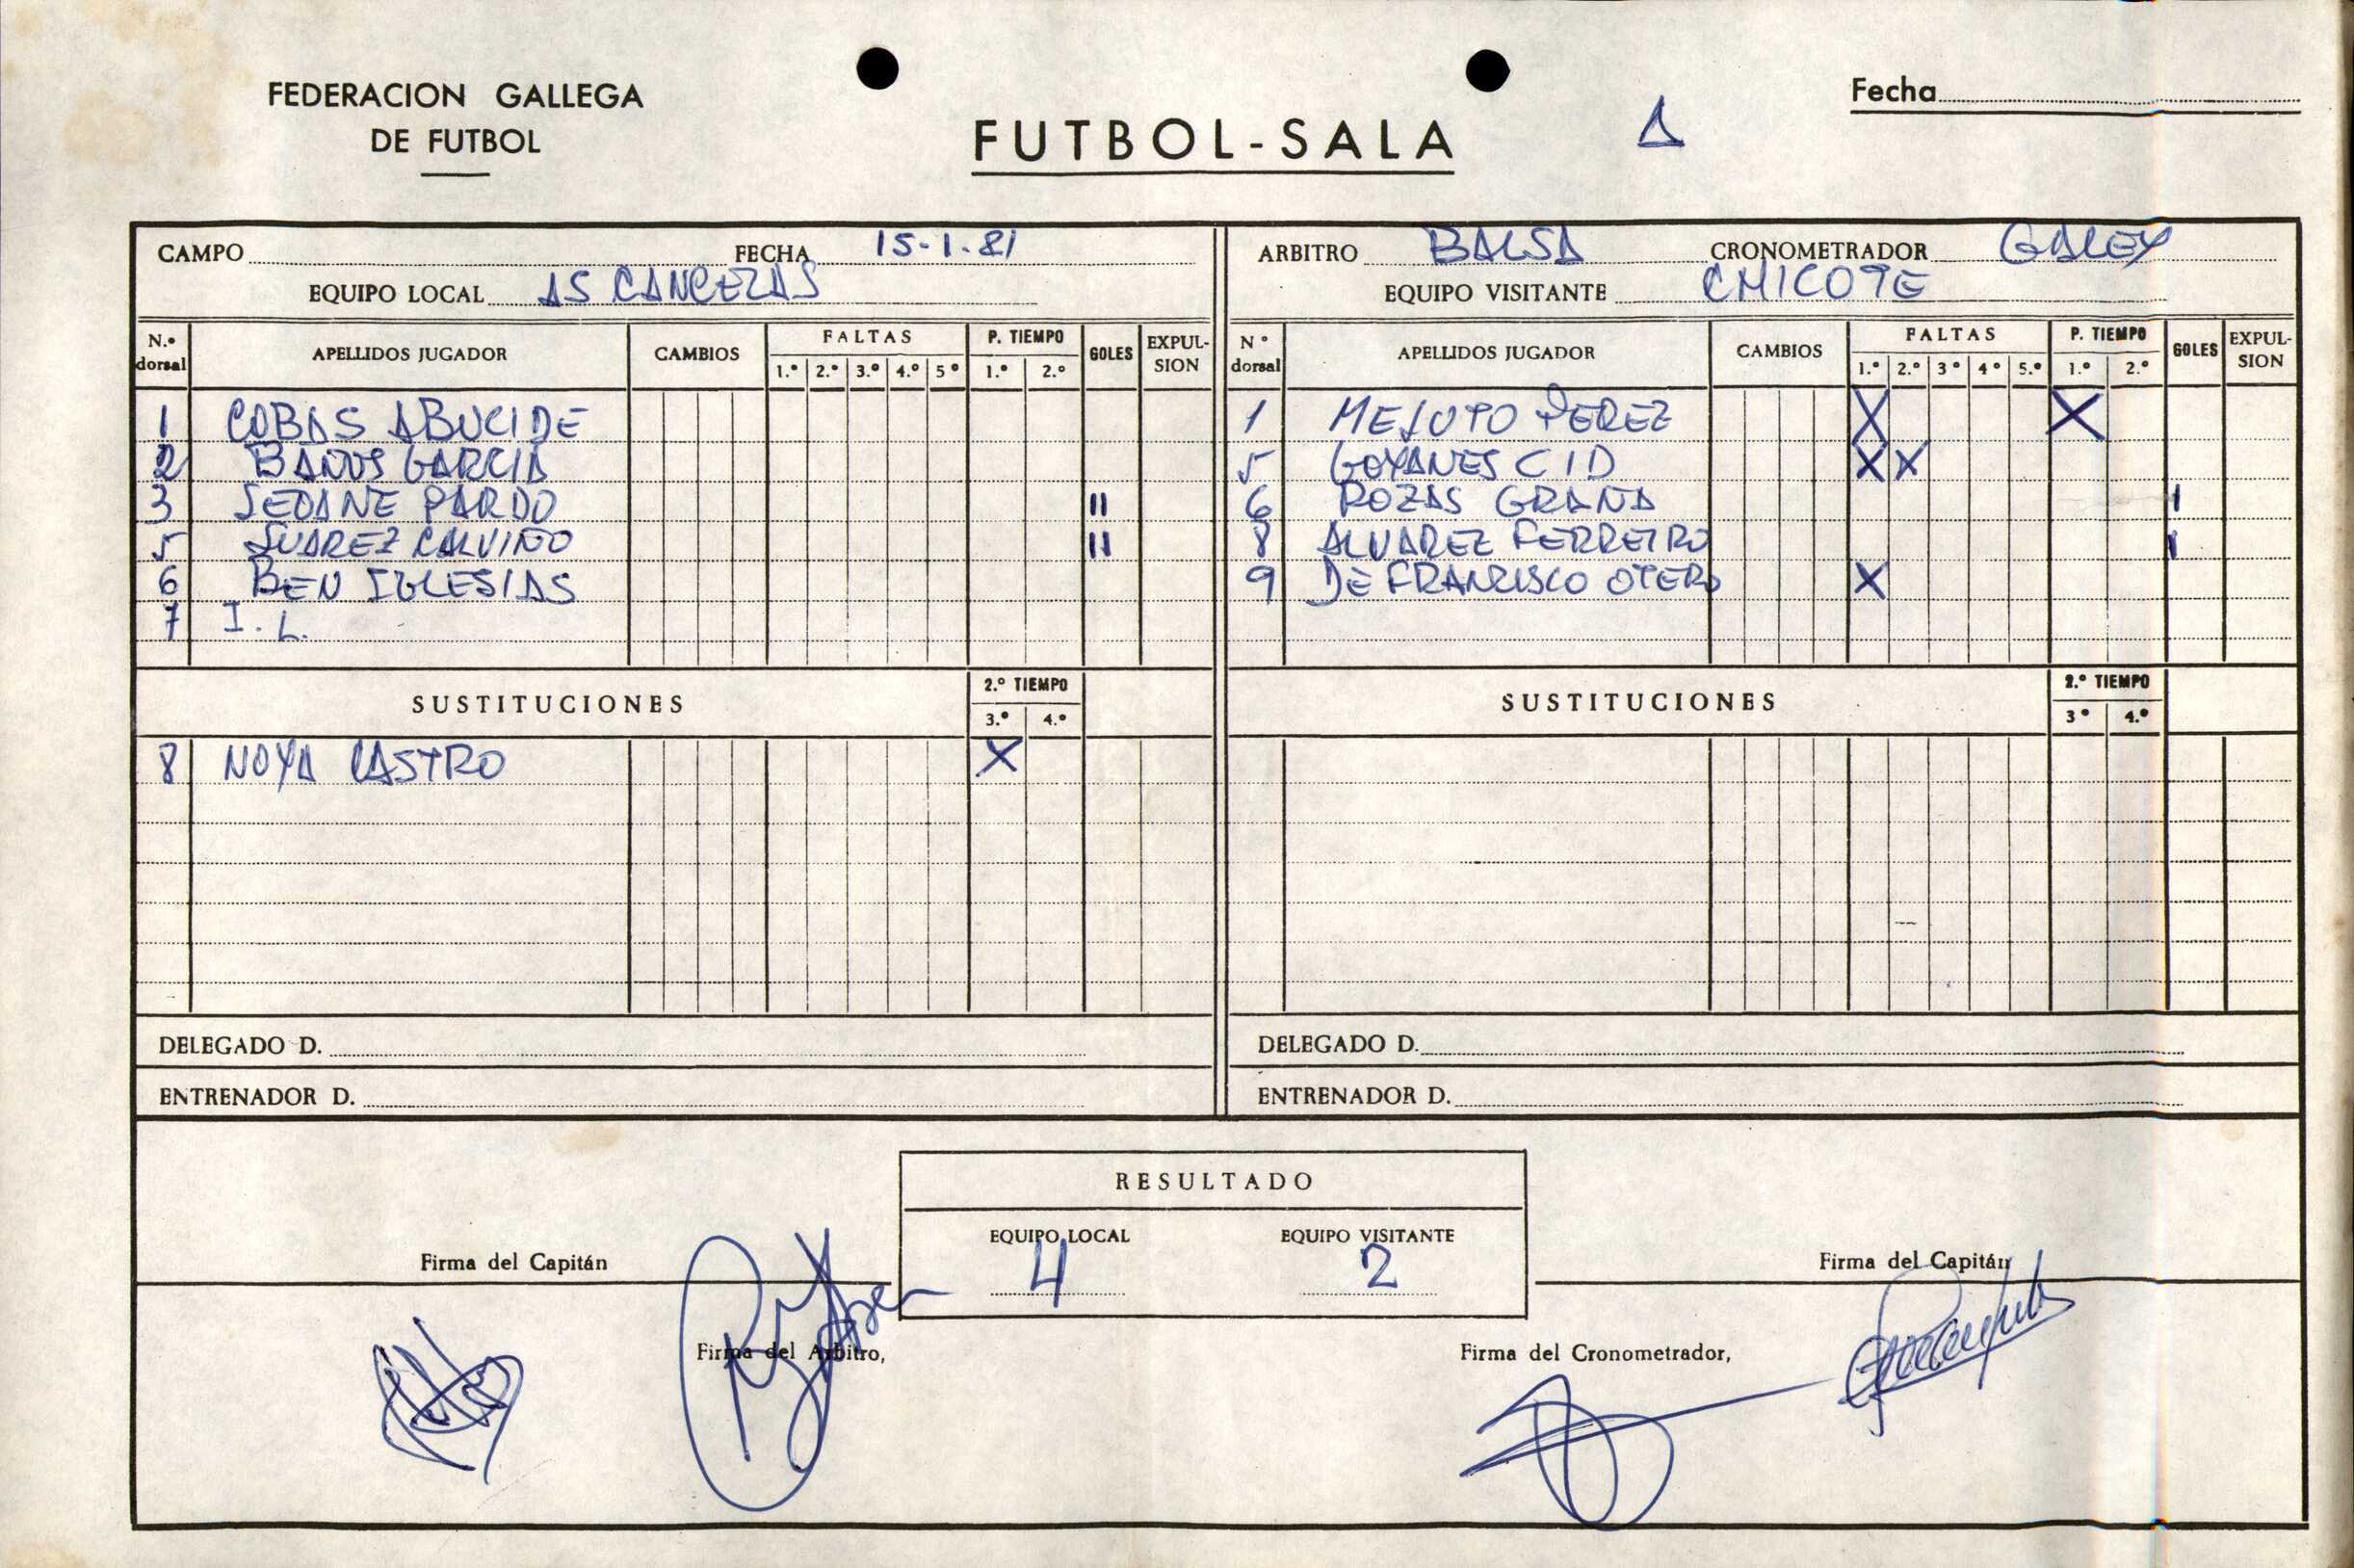 FEDERACION GALLEGA
DE FUTBOL
FUTBOL-SALA
Fecha
CAMPO FECHA 15-1-81
EQUIPO LOCAL AS CANCEZAS
ARBITRO BALSA CRONOMETRADOR GALEY
EQUIPO VISITANTE CHICOTE
N.º dorsal APELLIDOS JUGADOR CAMBIOS FALTAS 1.º 2.º 3.º 4.º 5º P. TIEMPO 1.º 2.º GOLES EXPULSION
1 COBAS ABUCIDE
2 BAÑOS GARCIA
3 SEOANE PARDO II
5 SUAREZ CALVIÑO II
6 BEN IGLESIAS
7 I. L.
SUSTITUCIONES 2.º TIEMPO 3.º 4.º
8 NOYA CASTRO X
DELEGADO D.
ENTRENADOR D.
Nº dorsal APELLIDOS JUGADOR CAMBIOS FALTAS 1.º 2.º 3º 4º 5.º P. TIEMPO 1.º 2.º GOLES EXPULSION
1 MEJUTO PEREZ X X
5 GOYANES CID X X
6 ROZAS GRAÑA I
8 ALVAREZ FERREIRO I
9 DE FRANCISCO OTERO X
SUSTITUCIONES 2.º TIEMPO 3º 4.º
DELEGADO D.
ENTRENADOR D.
RESULTADO
EQUIPO LOCAL EQUIPO VISITANTE
4 2
Firma del Capitán
Firma del Capitán
Firma del Arbitro,
Firma del Cronometrador,